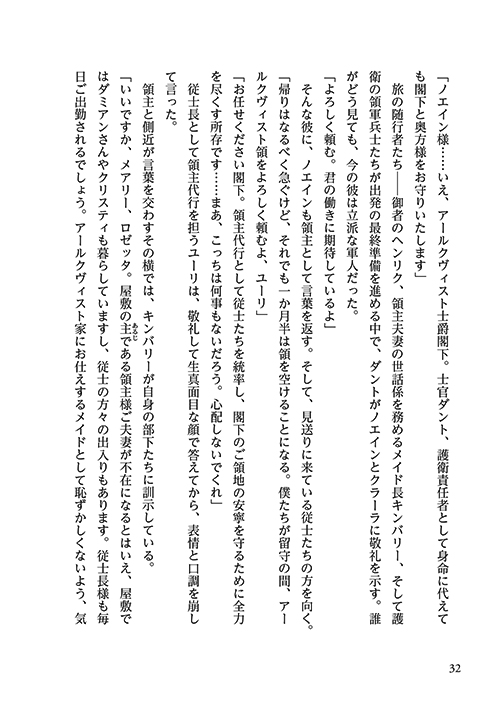 「ノエイン様……いえ、アールクヴィスト士爵閣下。士官ダント、護衛責任者として身命に代えて
も閣下と奥方様をお守りいたします」
　旅の随行者たち――御者のヘンリク、領主夫妻の世話係を務めるメイド長キンバリー、そして護
衛の領軍兵士たちが出発の最終準備を進める中で、ダントがノエインとクラーラに敬礼を示す。誰
がどう見ても、今の彼は立派な軍人だった。
「よろしく頼む。君の働きに期待しているよ」
　そんな彼に、ノエインも領主として言葉を返す。そして、見送りに来ている従士たちの方を向く。
「帰りはなるべく急ぐけど、それでも一か月半は領を空けることになる。僕たちが留守の間、アー
ルクヴィスト領をよろしく頼むよ、ユーリ」
「お任せください閣下。領主代行として従士たちを統率し、閣下のご領地の安寧を守るために全力
を尽くす所存です……まあ、こっちは何事もないだろう。心配しないでくれ」
　従士長として領主代行を担うユーリは、敬礼して生真面目な顔で答えてから、表情と口調を崩し
て言った。
　領主と側近が言葉を交わすその横では、キンバリーが自身の部下たちに訓示している。
「いいですか、メアリー、ロゼッタ。屋敷の主である領主様ご夫妻が不在になるとはいえ、屋敷で
あるじ
はダミアンさんやクリスティも暮らしていますし、従士の方々の出入りもあります。従士長様も毎
日ご出勤されるでしょう。アールクヴィスト家にお仕えするメイドとして恥ずかしくないよう、気
32